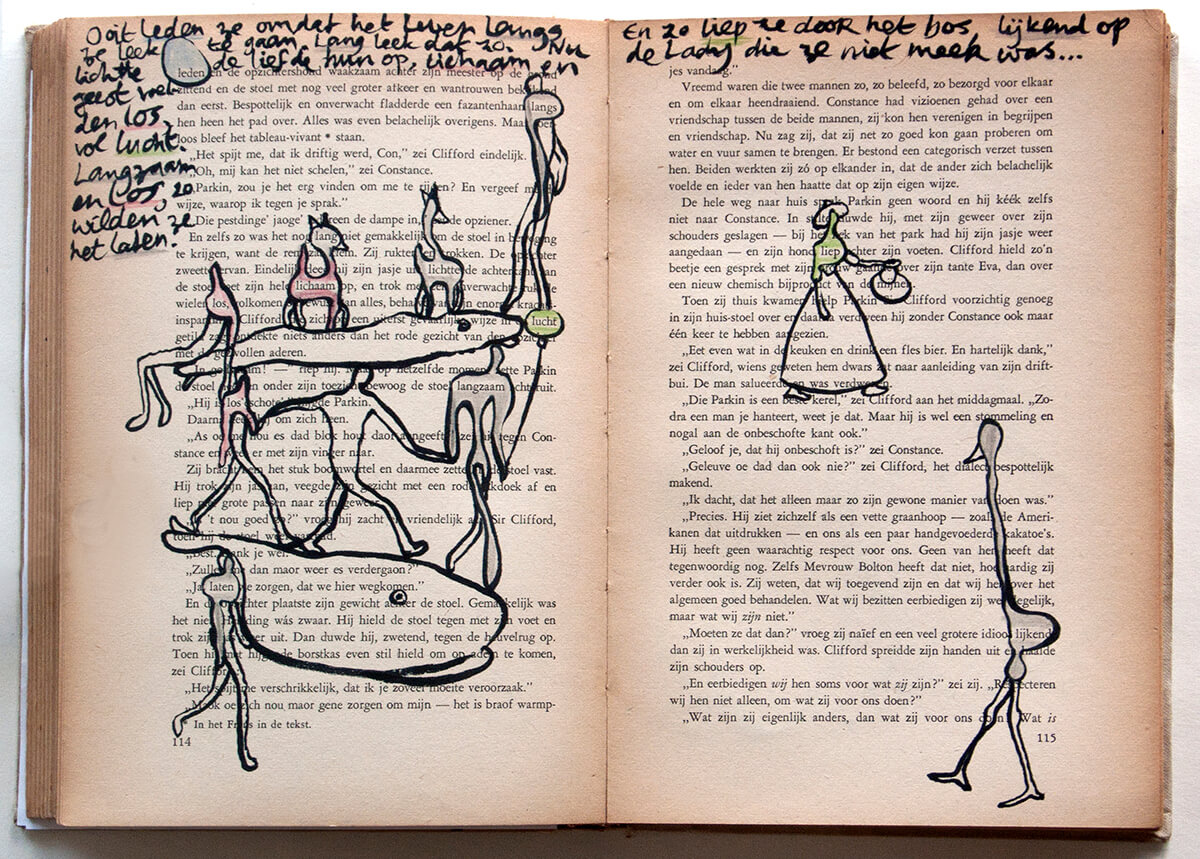 Ooit leden ze omdat het leven langs
ze leek te gaan. Lang leek dat zo. Nu
lichtte de liefde hun op. Lichaam en
geest voel
den los,
vol lucht.
Langzaam
en los, zo
wilden ze
het laten.
leden en de opzichtershond waakzaam achter zijn meester op de grond
zittend en de stoel met nog veel groter afkeer en wantrouwen
dan eerst. Bespottelijk en onverwacht fladderde een fazantenhaan langs
hen heen het pad over. Alles was even belachelijk overigens.
loos bleef het tableau-vivant * staan.
„Het spijt me, dat ik driftig werd, Con,” zei Clifford eindelijk.
„Oh, mij kan het niet schelen,” zei Constance.
„Parkin, zou je het erg vinden om me te rijden? En vergeef
wijze, waarop ik tegen je sprak.”
„Die pestdinge' jaoge' de dampe in,” opziener.
En zelfs zo was het nog lang niet gemakkelijk om de stoel in beweging
te krijgen, want de Zij rukten en trokken. De
zweette ervan. Eindelijk hij zijn jasje lichtte de achterkant
de stoel met zijn hele lichaam op, en trok met onverwachte
wielen los, volkomen van alles, van zijn enorme krachts-
inspanning. Clifford, die zich op een uiterst gevaarlijke wijze in lucht
getild zag, ontdekte niets anders dan het rode gezicht van den
met de gezwollen aderen.
riep hij. Op hetzelfde moment zette Parkin
de stoel neer en onder zijn toezicht bewoog de stoel langzaam achteruit.
„Hij is los, Parkin.
om zich heen.
„As oe me nou es dad blok hout daor aangeeft,” zei hij tegen Con-
stance en wees er met zijn vinger naar.
Zij bracht hem het stuk boomwortel en daarmee zette hij de stoel vast.
Hij trok zijn jas aan, veegde zijn gezicht met een rode zakdoek af en
liep met grote passen naar zijn geweer.
„Is 't nou goed zo?” vroeg hij zacht en vriendelijk aan Sir Clifford,
toen hij de stoel weer
„Best. Dank je wel.”
„Zulle me dan maor weer es verdergaon?”
„Ja, laten we zorgen, dat we hier wegkomen.”
En de opzichter plaatste zijn gewicht achter de stoel. Gemakkelijk was
het niet. Het ding wás zwaar. Hij hield de stoel tegen met zijn voet en
trok zijn jas weer uit. Dan duwde hij, zwetend, tegen de heuvelrug op.
Toen hij met hijgende borstkas even stil hield om op adem te komen,
zei Clifford:
„Het spijt me verschrikkelijk, dat ik je zoveel moeite veroorzaak.”
„Maok oe zich nou maor gene zorgen om mijn — het is braof warmp-
* In het Frans in de tekst.
114
En zo liep ze door het bos lijkend op
de Lady die ze niet meer was...
jes vandaag.”
Vreemd waren die twee mannen zo, zo beleefd, zo bezorgd voor elkaar
en om elkaar heendraaiend. Constance had vizioenen gehad over een
vriendschap tussen de beide mannen, zij kon hen verenigen in begrijpen
en vriendschap. Nu zag hij, dat zij net zo goed kon gaan proberen om
water en vuur samen te brengen. Er bestond een categorisch verzet tussen
hen. Beiden werkten zij zó op elkander in, dat de ander zich belachelijk
voelde en ieder van hen haatte dat op zijn eigen wijze.
De hele weg naar huis sprak Parkin geen woord en hij kéék zelfs
niet naar Constance. In stilte duwde hij, met zijn geweer over zijn
schouders geslagen — bij het hek van het park had hij zijn jasje weer
aangedaan — en zijn hond liep achter zijn voeten. Clifford hield zo'n
beetje een gesprek met zijn vrouw gaande over zijn tante Eva, dan over
een nieuw chemisch bijproduct van de mijnen.
Toen zij thuis kwamen hielp Parkin Clifford voorzichtig genoeg
in zijn huis-stoel over en daarna verdween hij zonder Constance ook maar
één keer te hebben aangezien.
„Eet even wat in de keuken en drink een fles bier. En hartelijk dank,”
zei Clifford, wiens geweten hem dwars zat naar aanleiding van zijn drift-
bui. De man salueerde en was verdwenen.
„Die Parkin is een beste kerel,” zei Clifford aan het middagmaal. „Zo-
dra een man je hanteert, weet je dat. Maar hij is wel een stommeling en
nogal aan de onbeschofte kant ook.”
„Geloof je, dat hij onbeschoft is?” zei Constance.
„Geleuve oe dad dan ook nie?” zei Clifford, het dialect bespottelijk
makend.
„Ik dacht, dat het alleen maar zo zijn gewone manier van doen was.”
„Precies. Hij ziet zichzelf als een vette graanhoop — zoals de Ameri-
kanen dat uitdrukken — en ons als een paar handgevoederde kakatoe's.
Hij heeft geen waarachtig respect voor ons. Geen van hen heeft dat
tegenwoordig nog. Zelfs Mevrouw Bolton heeft dat niet, hoe aardig zij
verder ook is. Zij weten, dat wij toegevend zijn en dat wij hen over het
algemeen goed behandelen. Wat wij bezitten eerbiedigen zij wel degelijk,
maar wat wij zijn niet.”
„Moeten ze dat dan?” vroeg zij naïef en een veel grotere idioot lijkend
dan zij in werkelijkheid was. Clifford spreidde zijn handen uit en haalde
zijn schouders op.
„En eerbiedigen wij hen soms voor wat zij zijn?” zei zij. „Respecteren
wij hen niet alleen, om wat zij voor ons doen?”
„Wat zijn zij eigenlijk anders, dan wat zij voor ons doen? Wat is
115